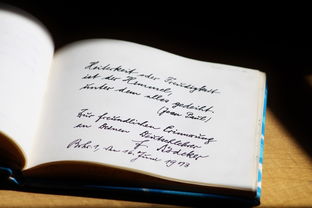 Heiterkeit oder Freudigkeit
ist der Himmel,
unter dem alles gedeiht.
(Jean Paul)
Zur freundlichen Erinnerung
an Deinen
F.
den 16. Juni 1973